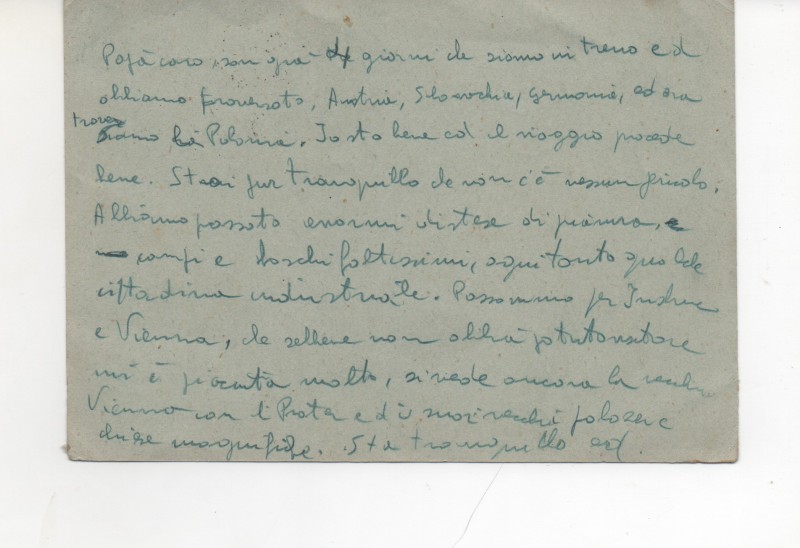 Papà caro, son già 4 giorni che siamo in treno ed
abbiamo traversato, Austria, Slovachia, Germania, ed ora
trova
siamo in Polonia. Io sto bene ed il viaggio procede
bene. Stai pur tranquillo che non c'è nessun pericolo.
Abbiamo passato enormi distese di pianura, e
campi e boschi foltissimi, ogni tanto qualche
cittadina industriale. Passammo per
e Vienna, che sebbene non abbia potuto visitare
mi è piaciuta molto, si vede ancora la vecchia
Vienna con il Prater ed i suoi vecchi palazzi e
chiese magnifiche. Sta tranquillo ed